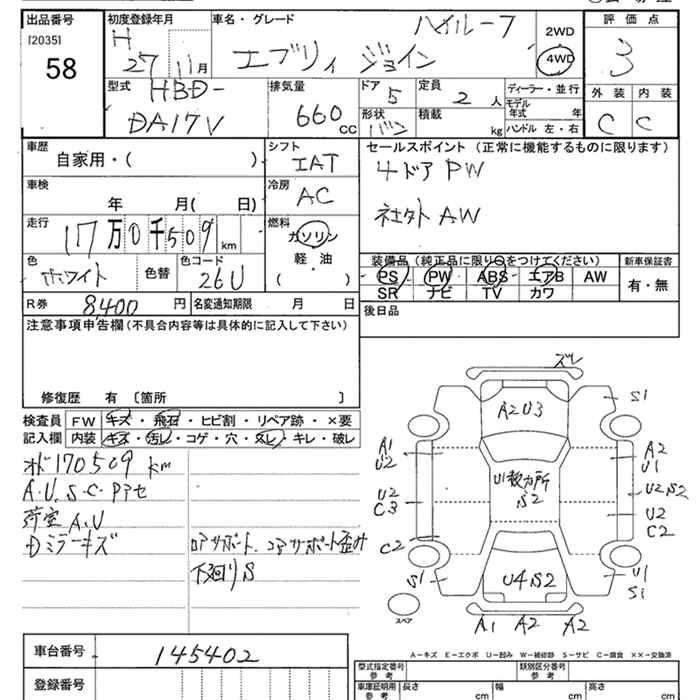 出品番号
[2035]
58
初度登録年月
H
27 11月
車名・グレード
ハイルーフ
エブリィ ジョイン
2WD
4WD
評価点
3
外装 内装
C C
型式
HBD-
DA17V
排気量
660 cc
ドア 5
形状 バン
定員 2 人
積載 kg
ディーラー・並行
モデル年式 年
ハンドル 左・右
車歴
自家用・( )
シフト
IAT
セールスポイント (正常に機能するものに限ります)
4ドア PW
社外 AW
車検
年 月( 日)
冷房
AC
走行
17万0千509 km
燃料
ガソリン
軽・油
( ・ )
色
ホワイト
色替
色コード
26U
装備品 (純正品に限り○をつけてください)
PS PW ABS エアB AW
SR ナビ TV カワ
新車保証書
有・無
R券 8,400 円
名変通知期限 月 日
後日品
注意事項申告欄 (不具合内容等は具体的に記入して下さい)
修復歴 有 [箇所 ]
検査員記入欄
FW キズ・飛石・ヒビ割・リペア跡・×要
内装 キズ・汚レ・コゲ・穴・スレ・キレ・破レ
オド170509km
A.U.S.C.
荷室 A.U
Dミラーキズ
コアサポート歪み
下廻りS
ズレ
A2U3
S1
A1
U2
A2
U1
U1数カ所
S2
U2
C3
U2S2
U2
C2
C2
S1
U4S2
U1
S1
A1 A2 A2
スペア
A-キズ E-エクボ U-凹み W-補修跡 S-サビ C-腐食 ××-交換済
車台番号
145402
登録番号
型式指定番号
参考
類別区分番号
参考
車庫証明用
参考
長さ cm
幅 cm
高さ cm